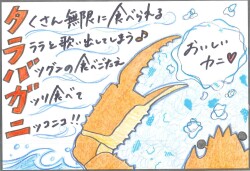 タくさん無限に食べられる
ララと歌い出してしまう♪
バツグンの食べごたえ
ガッツリ食べて
ニッコニコ!!
おいしい
カニ♡